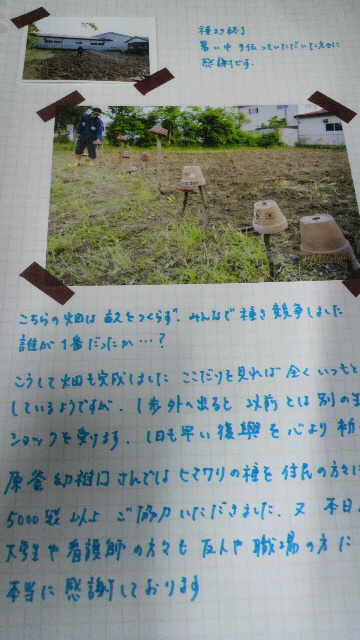 種まき終了
暑い中 手伝っていただいた方々に
感謝です。
こちらの畑は畝をつくらず、みんなで種まき競争しました
誰が1番だったか…?
こうして畑も完成しました ここだけを見れば全くいつもと
しているようですが、1歩外へ出ると 以前とは別の
ショックを受けます。1日も早い復興を心より祈
原釜幼稚園さんではヒマワリの種を住民の方々に
5000袋以上 ご協力いただきました。又 本日
大学生や看護師の方々も 友人や職場の方に
本当に感謝しております